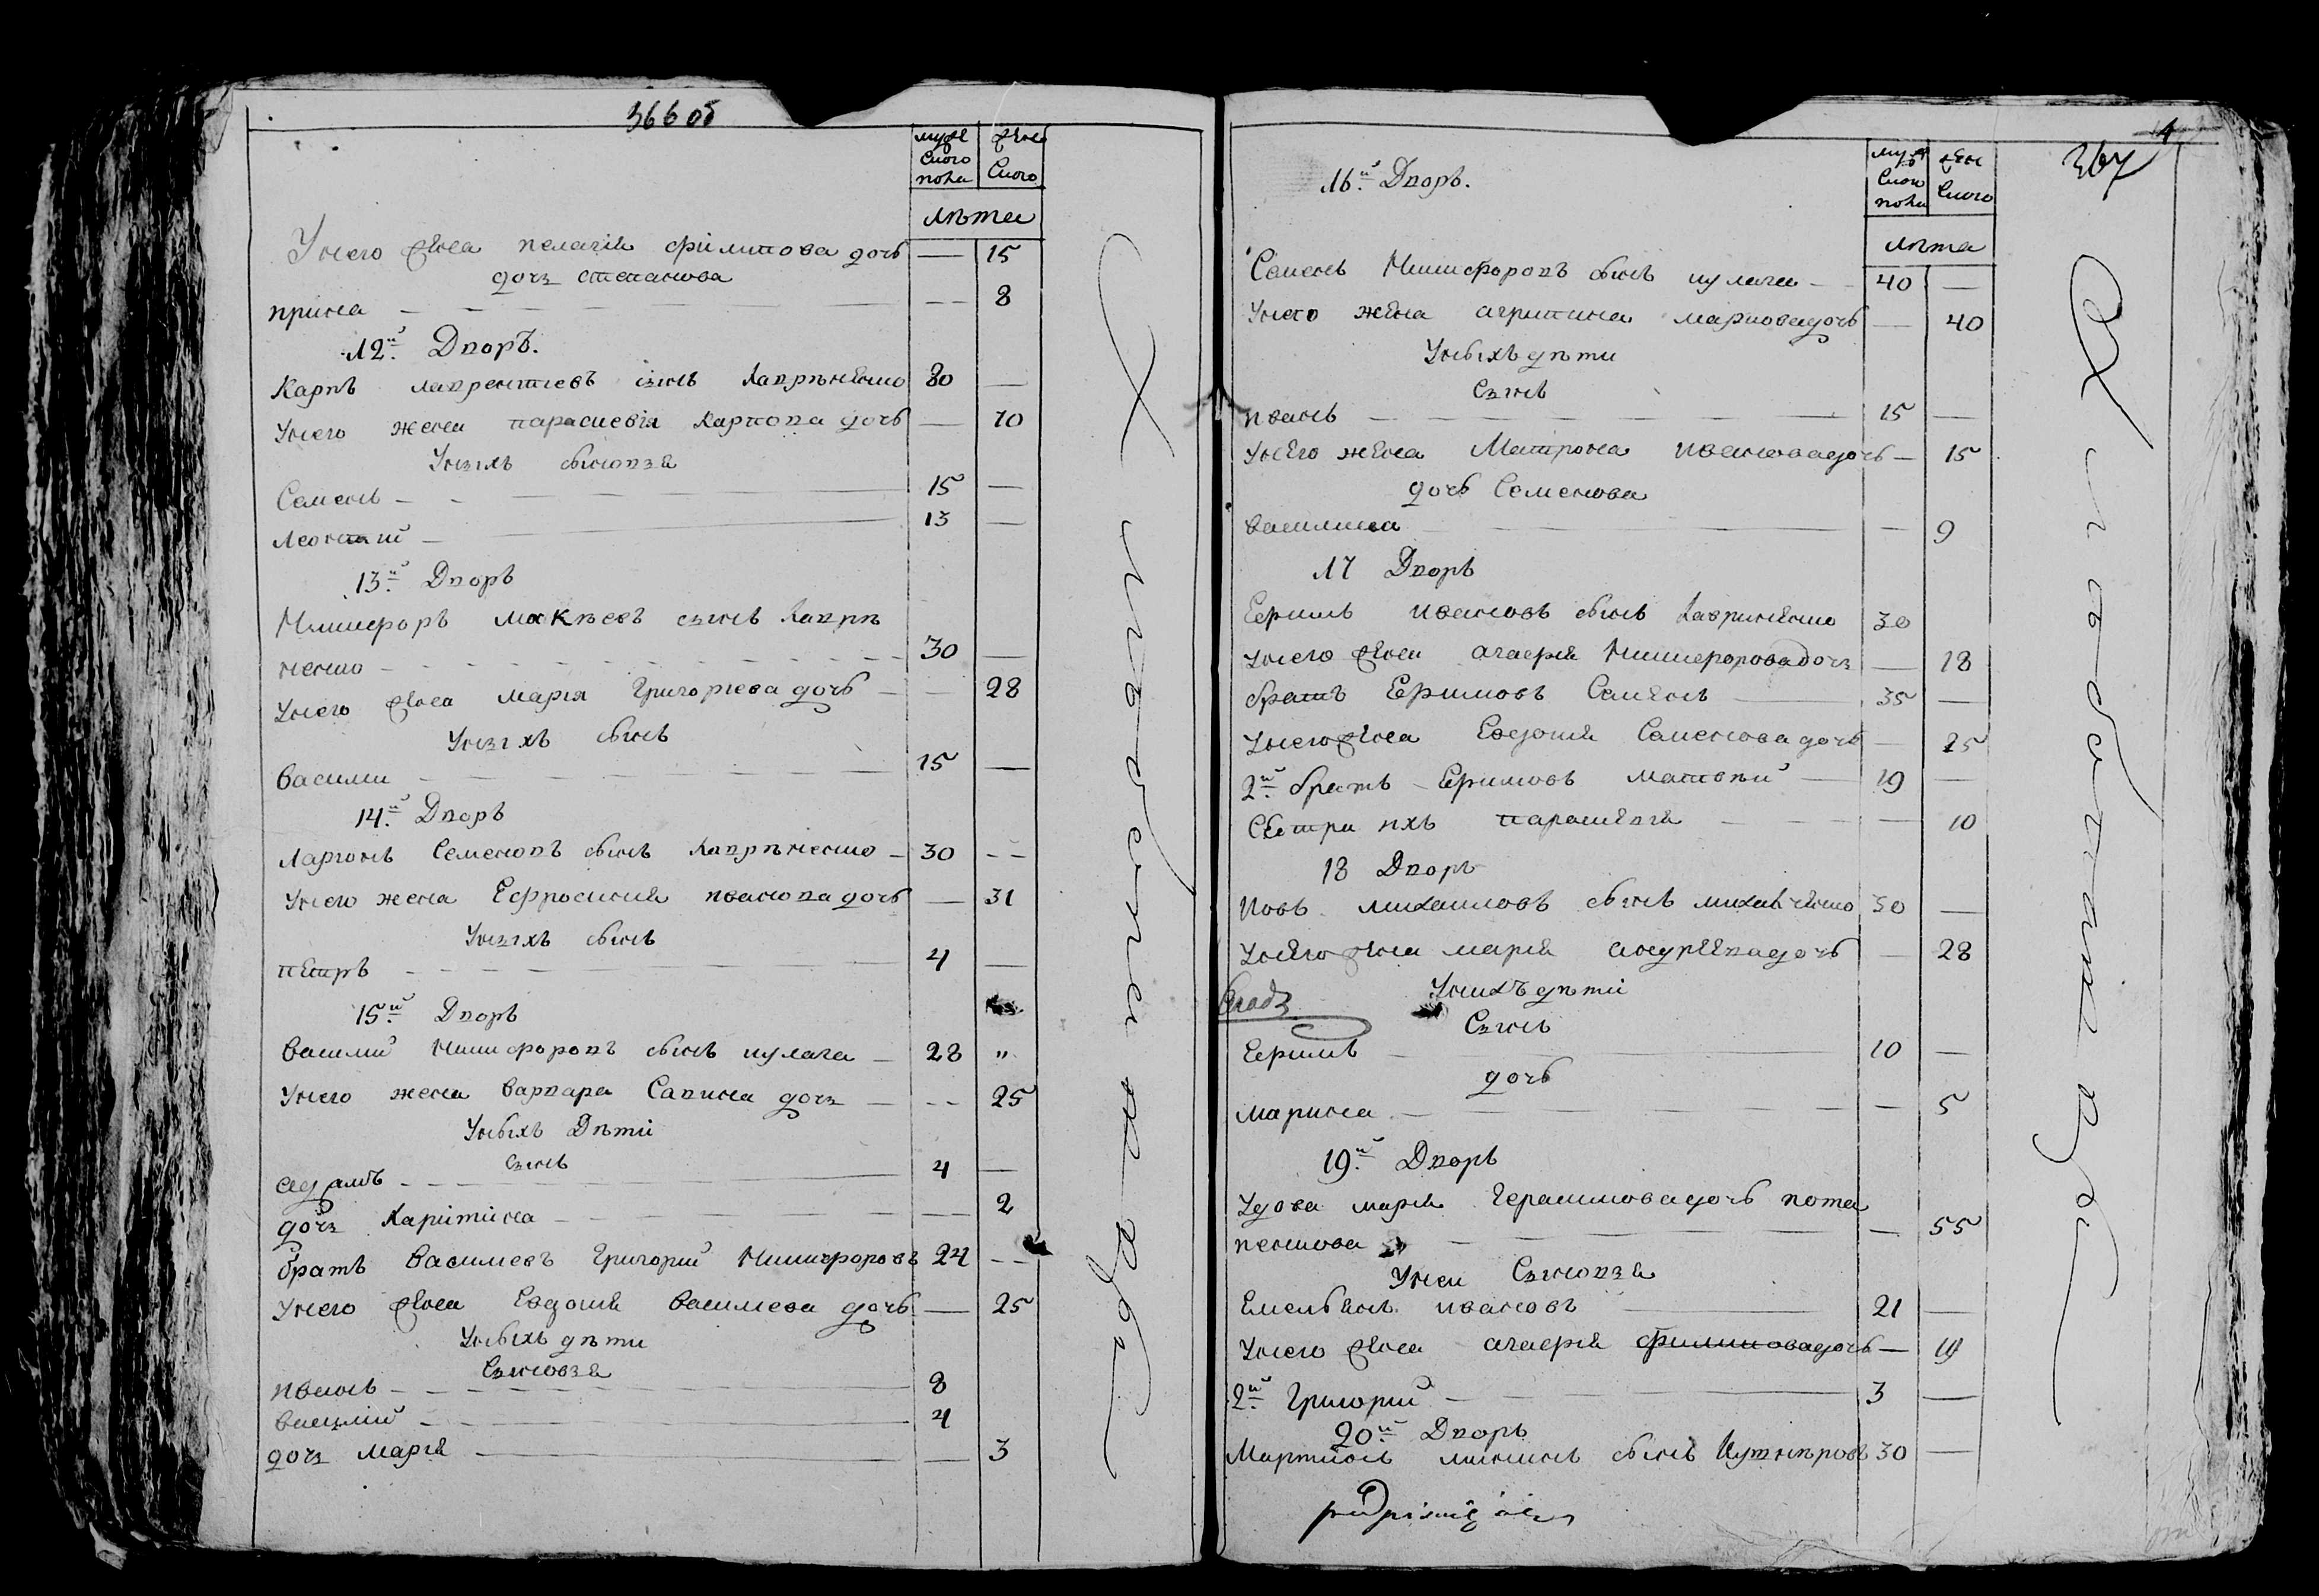 366 об
муже
скаго
пола
женс
скаго
лѣта
У него жена пелагія филипова дочь — 15
дочъ степанова
ирина — — 8
12й Дворъ.
Карпъ лаврентиевъ сынъ Лаврѣненко 80 —
У него жена парасковія Карпова дочь — 70
У нъıхъ сыновъя
Семенъ — 15 —
Леонтий — 13 —
13й Дворъ
Никифоръ макѣевъ сынъ Лаврѣ
ненко — 30 —
У него жена марія Григоріева дочь — — 28
У нъıхъ сынъ
Василии — 15 —
14й Дворъ
Ларіонъ Семеновъ сынъ Лаврѣненко — 30 — —
У него жена Ефросинія иванова дочь — 31
У нъıхъ сынъ
петръ — 4 —
15й Дворъ
Василий Никифоровъ сынъ кулага — 28 "
У него жена варвара Савина дочъ — — — 25
У ныхъ Дѣти
сынъ
адамъ — 4 —
дочъ Харитина — — 2
братъ Василиевъ Григорий Никифоровъ 24 — —
У него жена Евдокия василиева дочь — 25
У ныхъ дѣти
Сыновъя
иванъ — 8
василий — 4
дочъ марія — — 3
4
367
муж
скаго
пола
жен
скаго
16й Дворъ.
лѣта
Семенъ Никифоровъ сынъ кулага — 40 —
У него жена агрипина маркова дочь — 40
У ныхъ дѣти
сынъ
иванъ — 15 —
У него жена Матрона иванова дочь — 15
дочь Семенова
василиса — — 9
17 Дворъ
Ефимъ ивановъ сынъ Лавриненко 30
У него жена агафія Никифорова дочъ — 18
братъ Ефимовъ Семенъ — 35 —
У него жена Евдокия Семенова дочь — 25
2й братъ Ефимовъ матвѣий — 19 —
Сестра ихъ парасковія — — 10
18 Дворъ
иовъ михаиловъ сынъ михайленко 30 —
У него жена марія дочь — 28
У нихъ дѣти
Сынъ
Ефимъ — 10 —
дочь
марина — — 5
19й Дворъ
Удова марія Герасимова дочь пота
пенкова — — 55
У неи Сыновъя
Емельянъ ивановъ — 21 —
У него жена агафія филипова дочь — 19
2й Григории — 3 —
20й Дворъ
Мартинъ сынъ 30 —